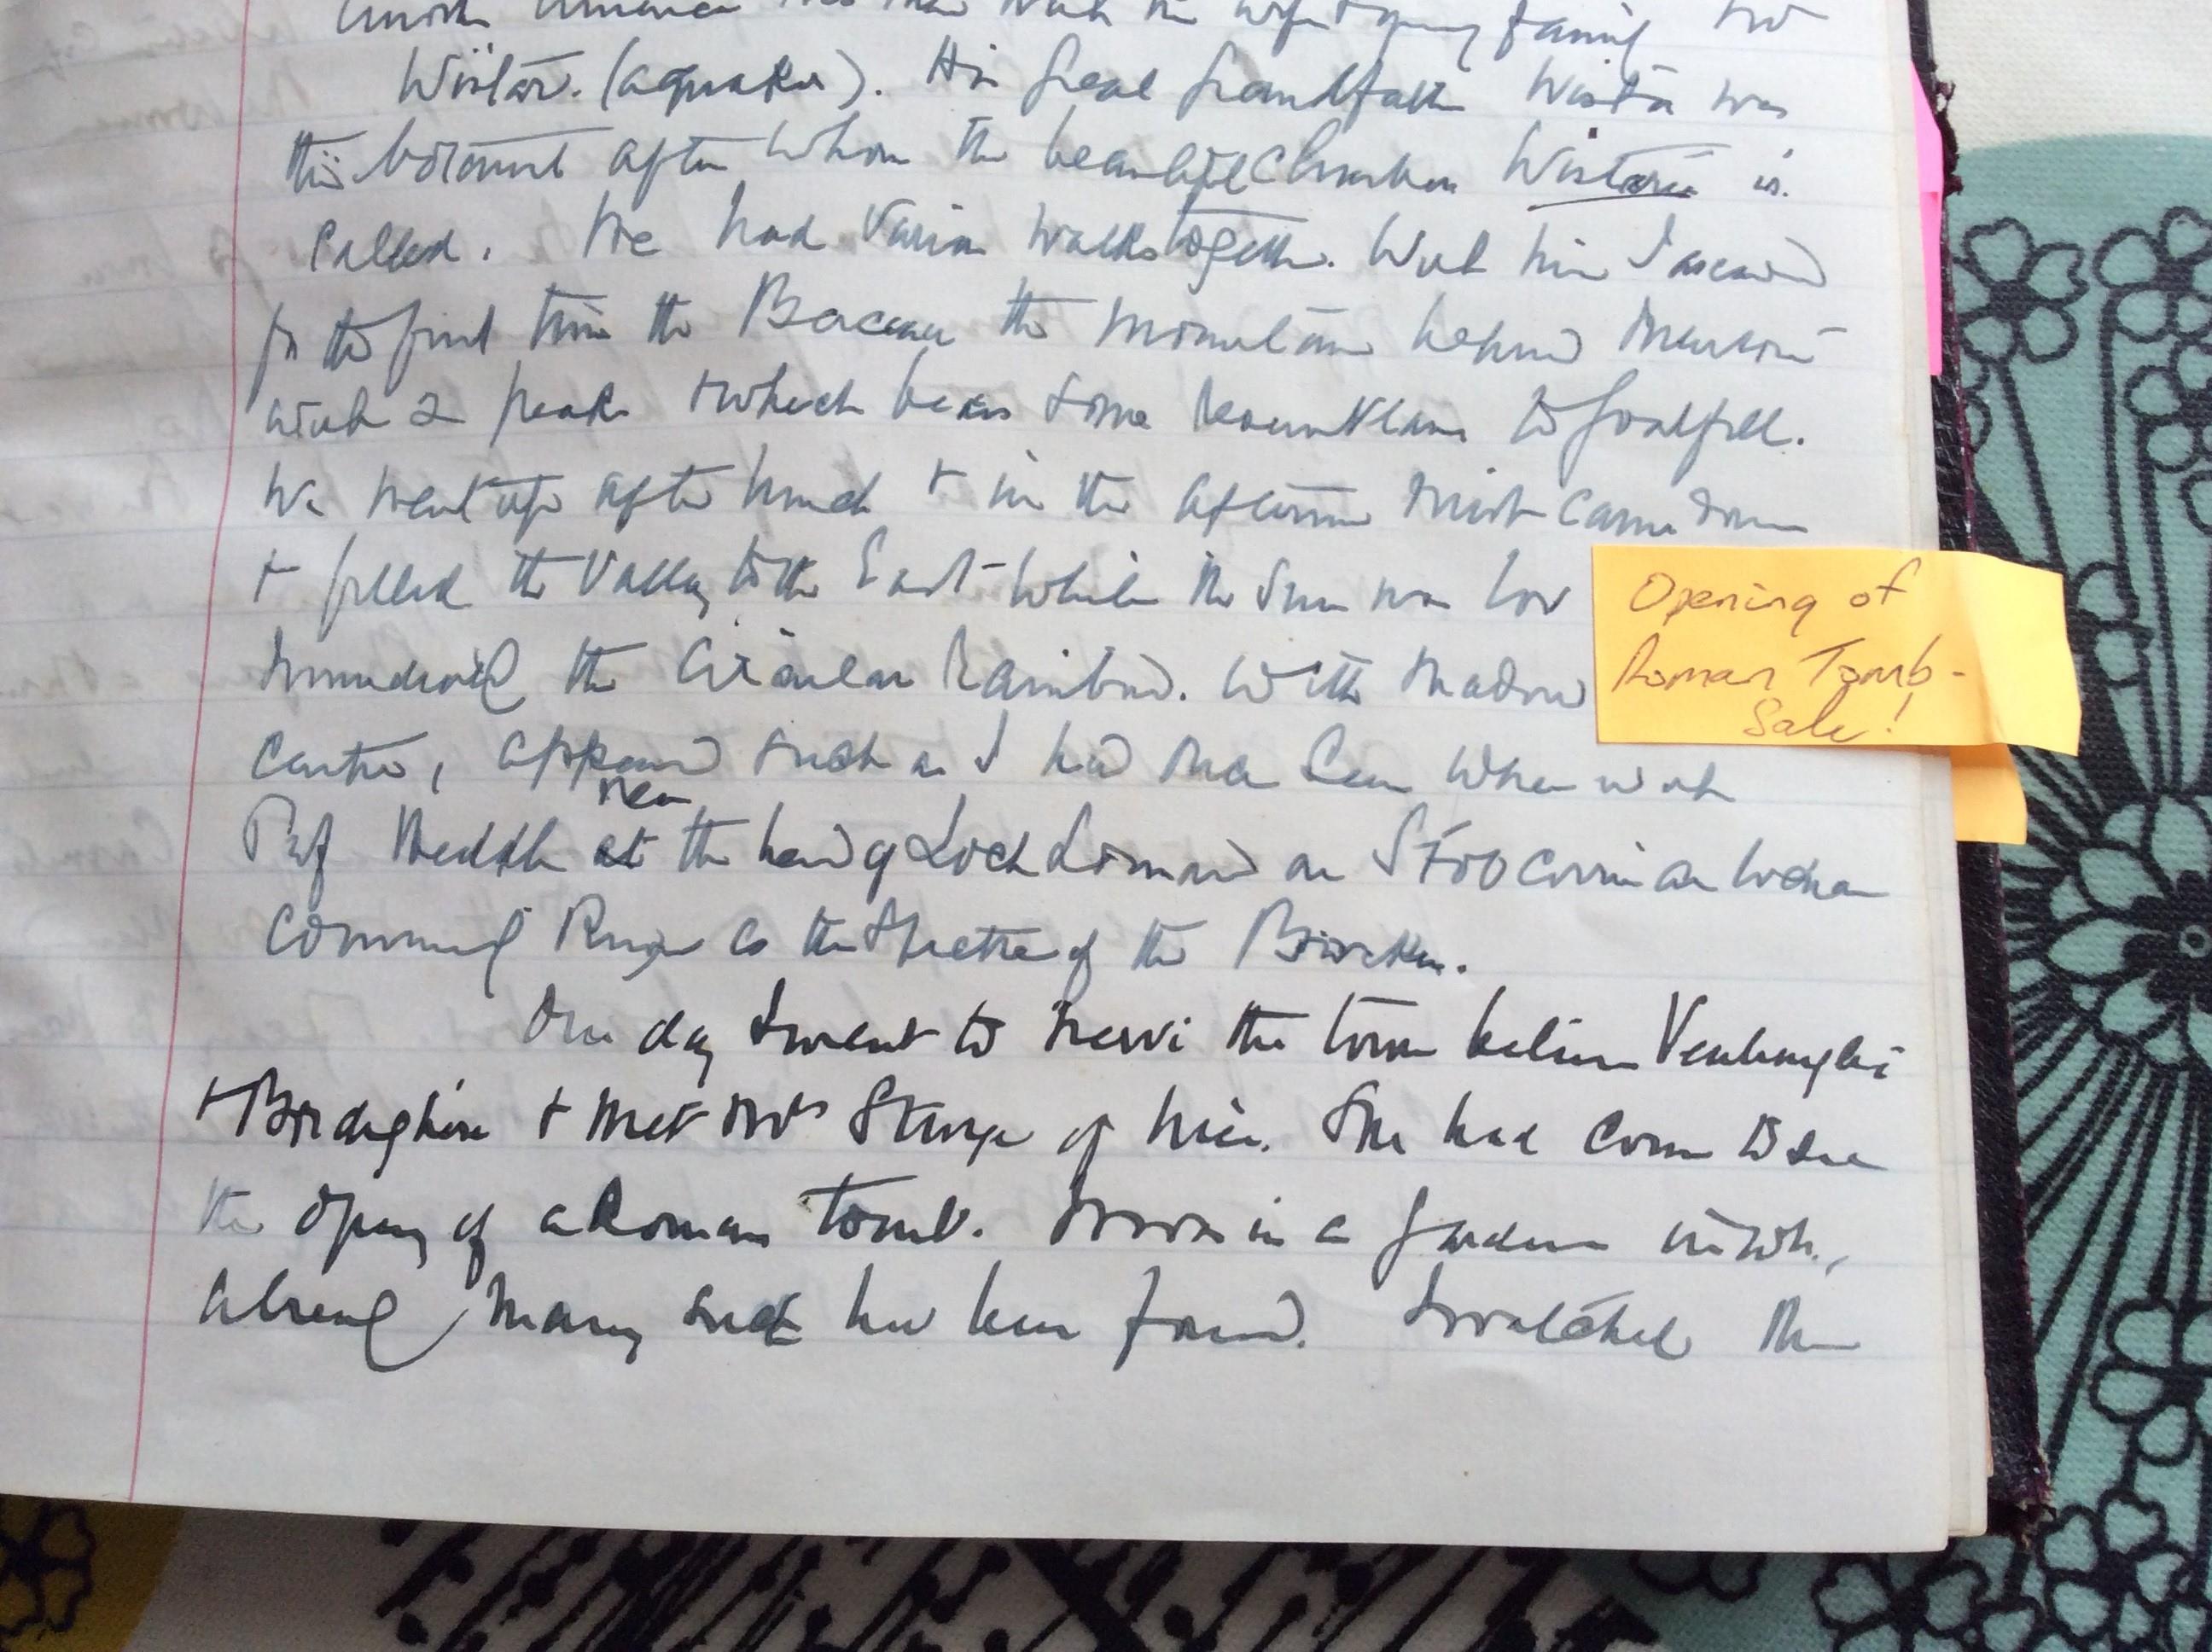 North America was then with his wife & young family
Wistar. (a quaker). His great grandfather Wistar was
the botanist after whom the beautiful climber Wistaria is
called. We had various walks together. With him I ascended
for the first time the Berceau the mountain behind Mentone
with 2 peaks & which bears some
We went up after lunch & in the afternoon mist came down
& filled the valley to the East while the sun was low
the circular rainbow. With shadow
centre, appeared such as I had once seen when with
Prof Heddle at near the head of Loch Lomond on
commonly known as the Spectre of the Brocken.
One day I went to Nervi the town between Ventimiglia
& Bordighera & met Mrs Sturge of Nice. She had come to see
the opening of a Roman tomb. Down in a garden in wh.,
already many such have been found. I watched the
Opening of
Roman Tomb -
Sale!